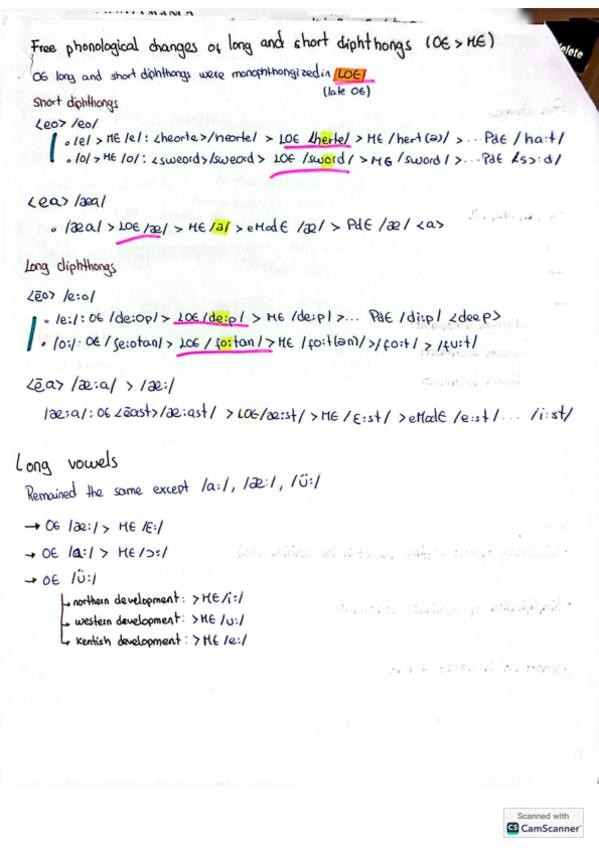 Free phonological changes of long and short diphthongs (OE > ME)
OE long and short diphthongs were monophthongized in LOE
(late OE)
Short diphthongs
<eo> /eo/
• /e/ > ME /e/: <heorte>/heorte/ > LOE /herte/ > ME /hert(ə)/ > ... PdE /ha:t/
• /o/ > ME /o/: <sweord>/sweord> LOE /sword/ > ME /sword/ > ... PdE <sɔ:d/
<ea> /æa/
• /æa/ > LOE /æ/ > ME /a/ > eModE /æ/ > PdE /æ/ <a>
Long diphthongs
<ēo> /e:o/
• /e:/: OE /de:op/ > LOE /de:p/ > ME /de:p/ > ... PdE /di:p/ <deep>
• /o:/: OE /ʃe:otan/ > LOE /ʃo:tan/ > ME /ʃo:t(ən)/>/ʃo:t/ > /ʃu:t/
<ēa> /æ:a/ > /æ:/
/æ:a/: OE <ēast>/æ:ast/ > LOE/æ:st/ > ME /ɛ:st/ > eModE /e:st/ ... /i:st/
Long vowels
Remained the same except /a:/, /æ:/, /ü:/
→ OE /æ:/ > ME /ɛ:/
→ OE /a:/ > ME /ɔ:/
→ OE /ü:/
northern development: > ME /i:/
western development: > ME /u:/
Kentish development: > ME /e:/
Scanned with
CS CamScanner